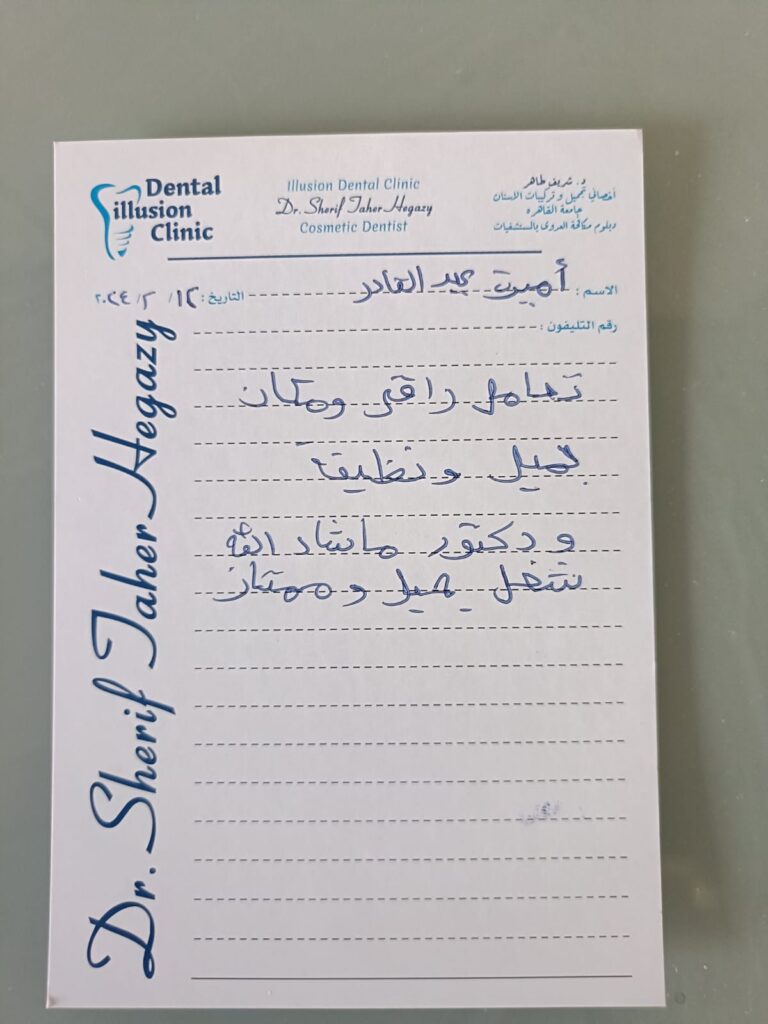 Dental
illusion
Clinic
Illusion Dental Clinic
Dr. Sherif Taher Hegazy
Cosmetic Dentist
د. شريف طاهر
أخصائي تجميل و تركيبات الاسنان
جامعة القاهرة
دبلوم مكافحة العدوى بالمستشفيات
الاسم : أميرت عبد القادر
التاريخ : ١٢ / ٢ / ٢٠٢٤
رقم التليفون :
تعامل راقى ومكان
جميل ونظيفة
و دكتور ماشاء الله
شغل جميل و ممتاز
Dr. Sherif Taher Hegazy